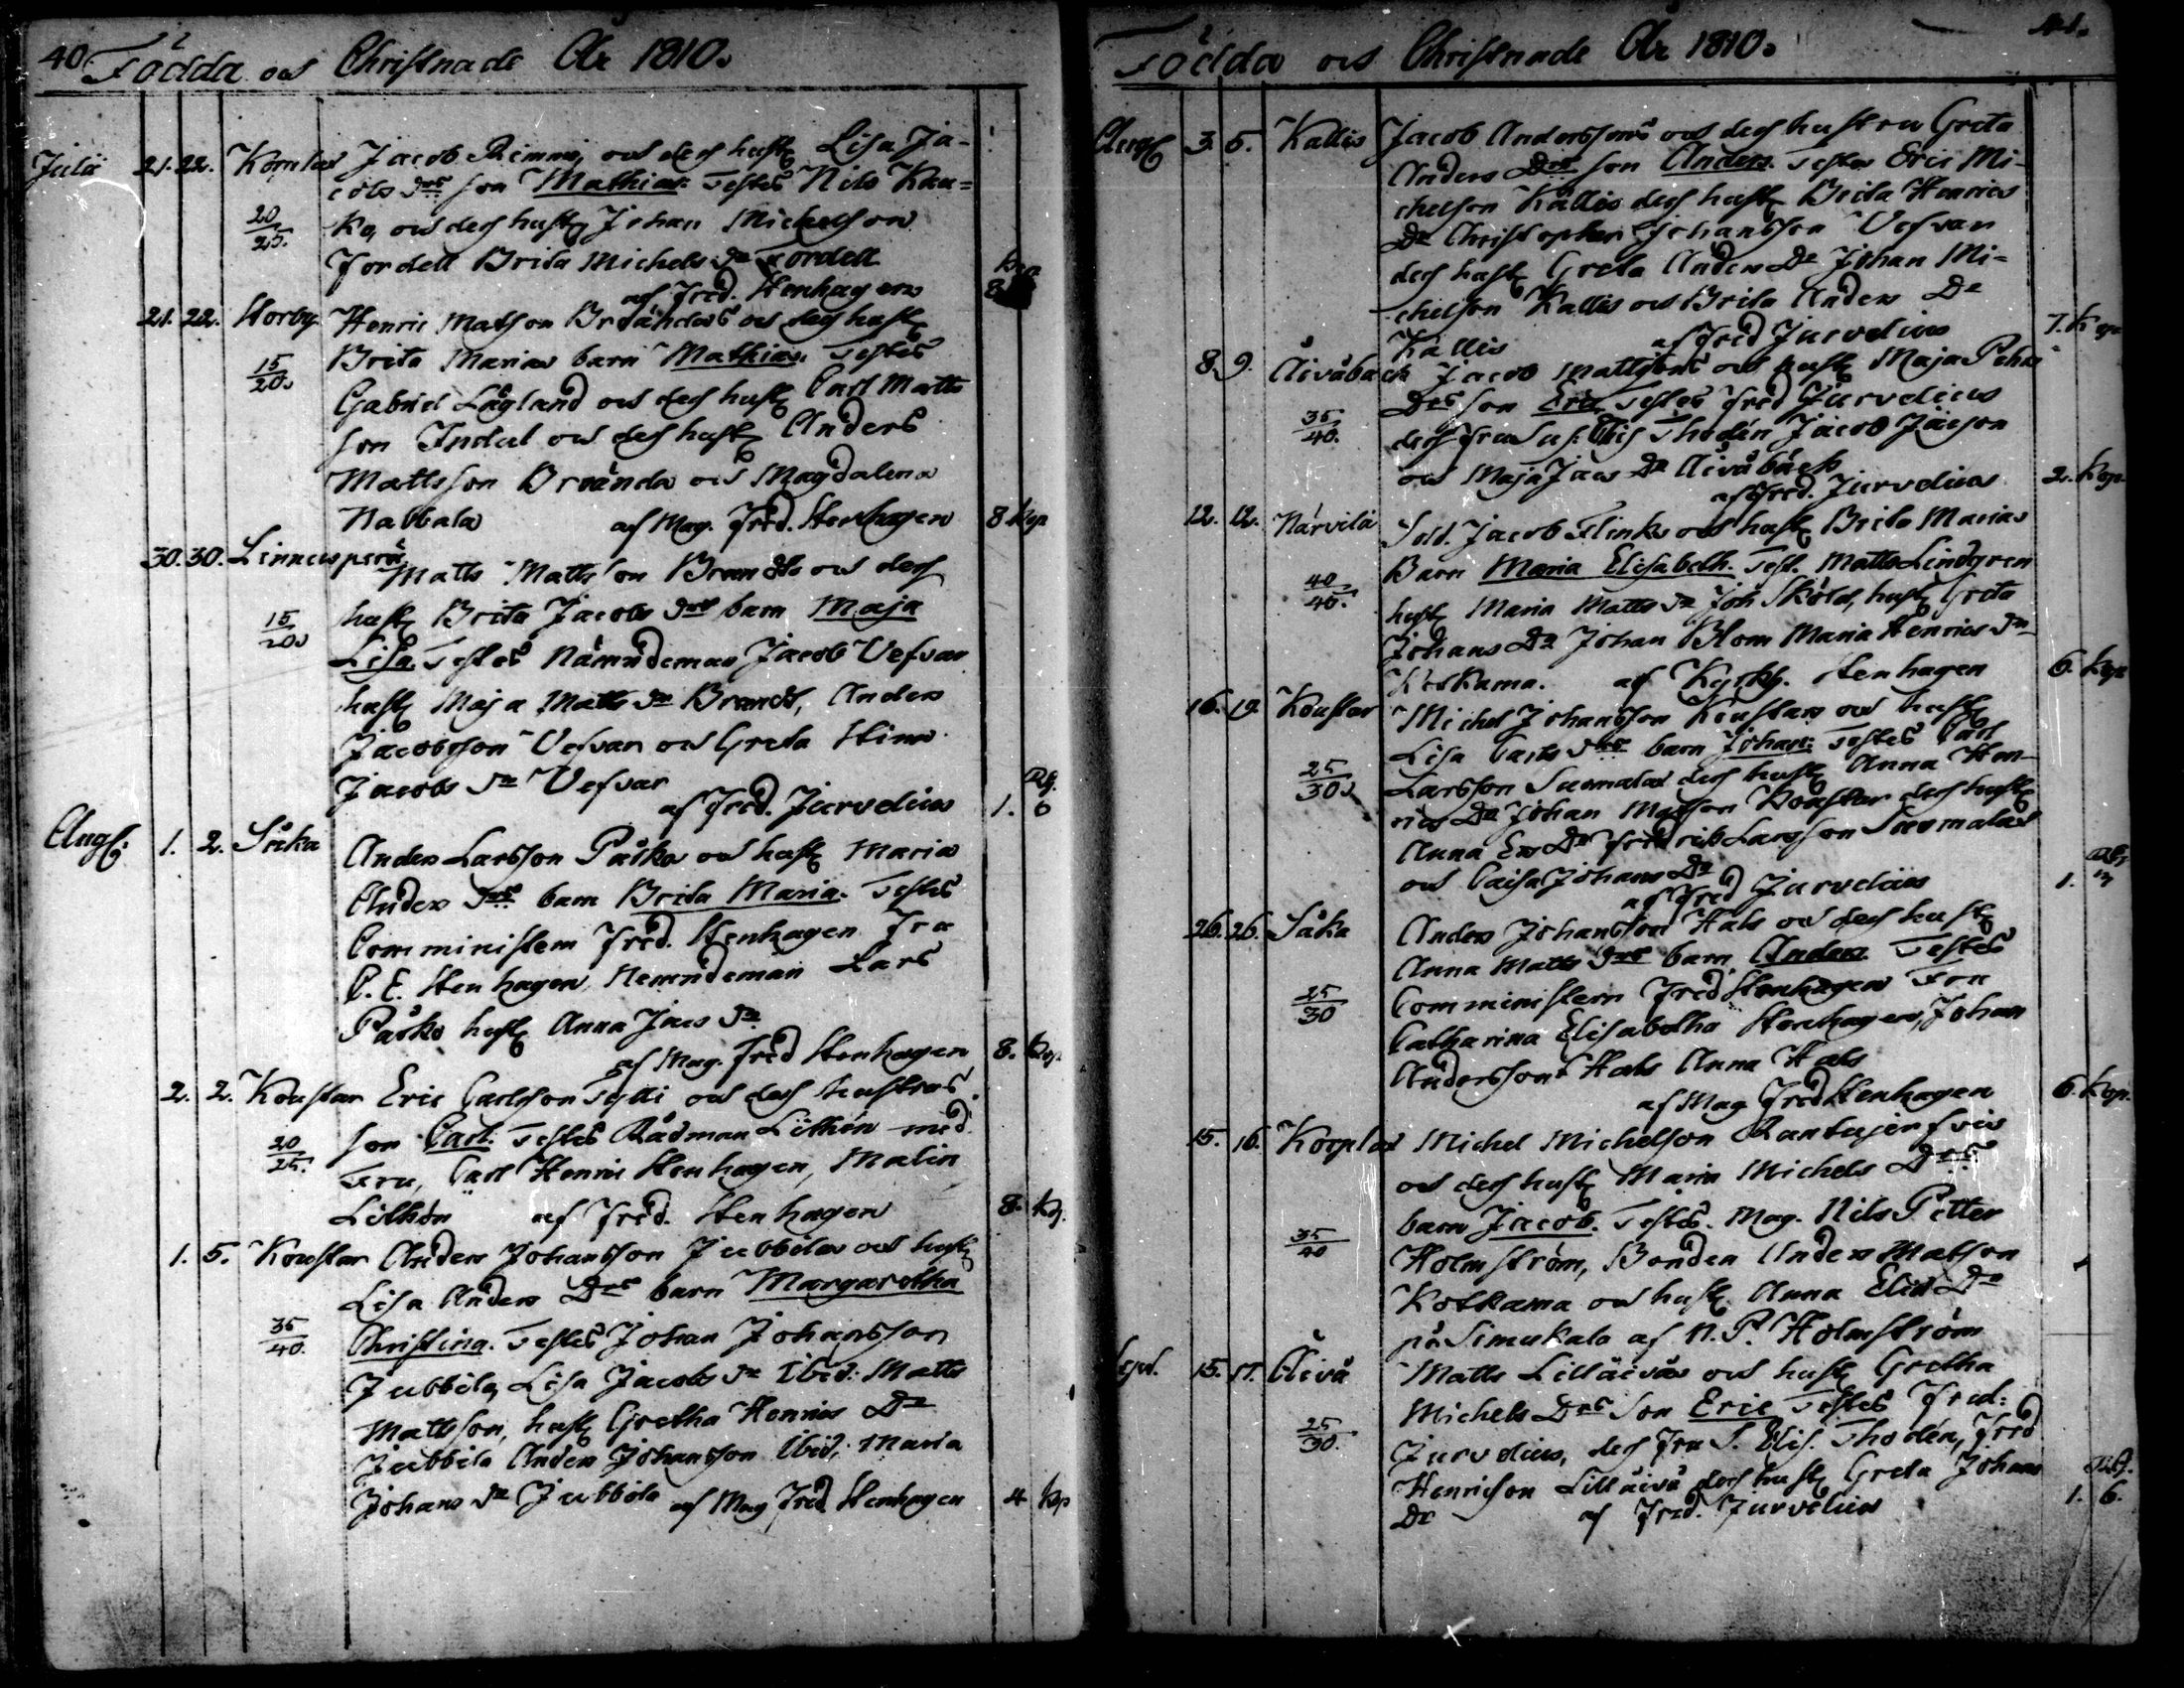 40 Födda och Christnade År 1810.
Julii 21. 22. Korplax Jacob Rimmi och dess hust Lisa Ja-
cobs drs son Mathias. Testes Nils Kau=
20/25. ko, och dess hust Johan Michelson
Fordell Brita Michels dr Fordell
af Fred. Stenhagen 8 kop
21. 22. Storby Henric Matson Brändas och dess hust
Brita Marias barn Mathias. Testes
15/20. Gabriel Lågland och dess hust Carl Matts
son Indal och dess hust Anders
Mattsson Brända och Magdalena
Nabbala af Mag. Fred. Stenhagen 8 kop
30. 30. Linnusperä
Matts Mattsson Brandts och dess
15/20. hust Brita Jacobs drs barn Maja
Lisa Testes Nämndeman Jacob Vefvar
hust Maja Matts dr Brandt, Anders
Jacobsson Vefvar och Greta Stina
Jacobs dr Vefvar
af Fred. Jurvelius 1.
Aug: 1. 2. Såka Anders Larsson Påsko och hust Maria
Anders drs barn Brita Maria. Testes
Comministern Fred. Stenhagen Fru
C. E. Stenhagen, Nemndeman Lars
Påsko hust Anna Jacs dr
af Mag. Fred Stenhagen 8. kop
2. 2. Koustar Eric Carlsson Tylli och dess hustrus
20/25. son Carl. Testes Rådman Lithén med
Fru, Carl Henric Stenhagen, Malin
Lithén af Fred. Stenhagen 8. kop.
1. 5. Koustar Anders Johansson Jubbila och hust
Lisa Anders Drs barn Margaretha
35/40. Christina. Testes Johan Johansson
Jubbila, Lisa Jacobs dr Ibid. Matts
Mattsson, hust Gretha Henrics Dr
Jubbila Anders Johansson Ibid. Maria
Johans dr Jubbila af Mag Fred Stenhagen 4 kop
Födda och Christnade År 1810. 41.
Aug 3. 5. Kallis Jacob Anderssons och dess hustru Greta
Anders Drs son Anders. Testes Eric Mi-
chelson Kallis dess hust Brita Henrics
Dr Christopher Johansson Vefvar
dess hust Greta Anders Dr Johan Mi=
chelson Kallis och Brita Anders Dr
Kallis af Fred Jurvelius 7. Kop
8. 9. Åivåback Jacob Mattssons och hust Maja Pehrs
Drs son Eric, Testes Fred Jurvelius
35/40. dess Fru Sus: Elis Thodén Jacob Jacson
och Maja Jacs Dr Åivåback
af Fred. Jurvelius 2. Kop
12. 12. Närvilä Sold. Jacob Flinks och hust Brita Marias
Barn Maria Elisabeth. Test. Matts Lindgren
40/45. hust Maria Matts dr Joh Sköld, hust Greta
Johans Dr Johan Blom Maria Henrics dr
Kotkama. af Kyrkh. Stenhagen 6. kop
16. 19. Koustar Michel Johansson Koustars och hust
Lisa Carls drs barn Johan: Testes Carl
25/30. Larsson Suomalax dess hust Anna Hen-
rics Dr Johan Matson Koustar dess hust
Anna Ers Dr Fredrich Larsson Suomalax
och Caisa Johans Dr
af Fred Jurvelius 1.
26. 26. Såka Anders Johansson Hals och dess hust
Anna Matts drs barn Anders Testes
25/30 Comministern Fred Stenhagen Fru
Catharina Elisabetha Stenhagen, Johan
Andersson Hals Anna Hals
af Mag Fred Stenhagen 6. kop.
15. 16. Korplax Michel Michelson
och dess hust Maria Michels Drs
barn Jacob. Testes. Mag. Nils Petter
35/40 Holmström, Bonden Anders Matson
Kotkama och hust Anna Elis Dr
på Simukala af N. P. Holmström
Sept. 15. 17. Åivå Matts Lillåivå och hust Gretha
Michels Drs Son Eric Testes Fred:
25/30. Jurvelius, dess Fru S. Elis. Thodén, Fred
Henricson Lillåivå dess hust Greta Johans
Dr af Fred. Jurvelius 1. 6.